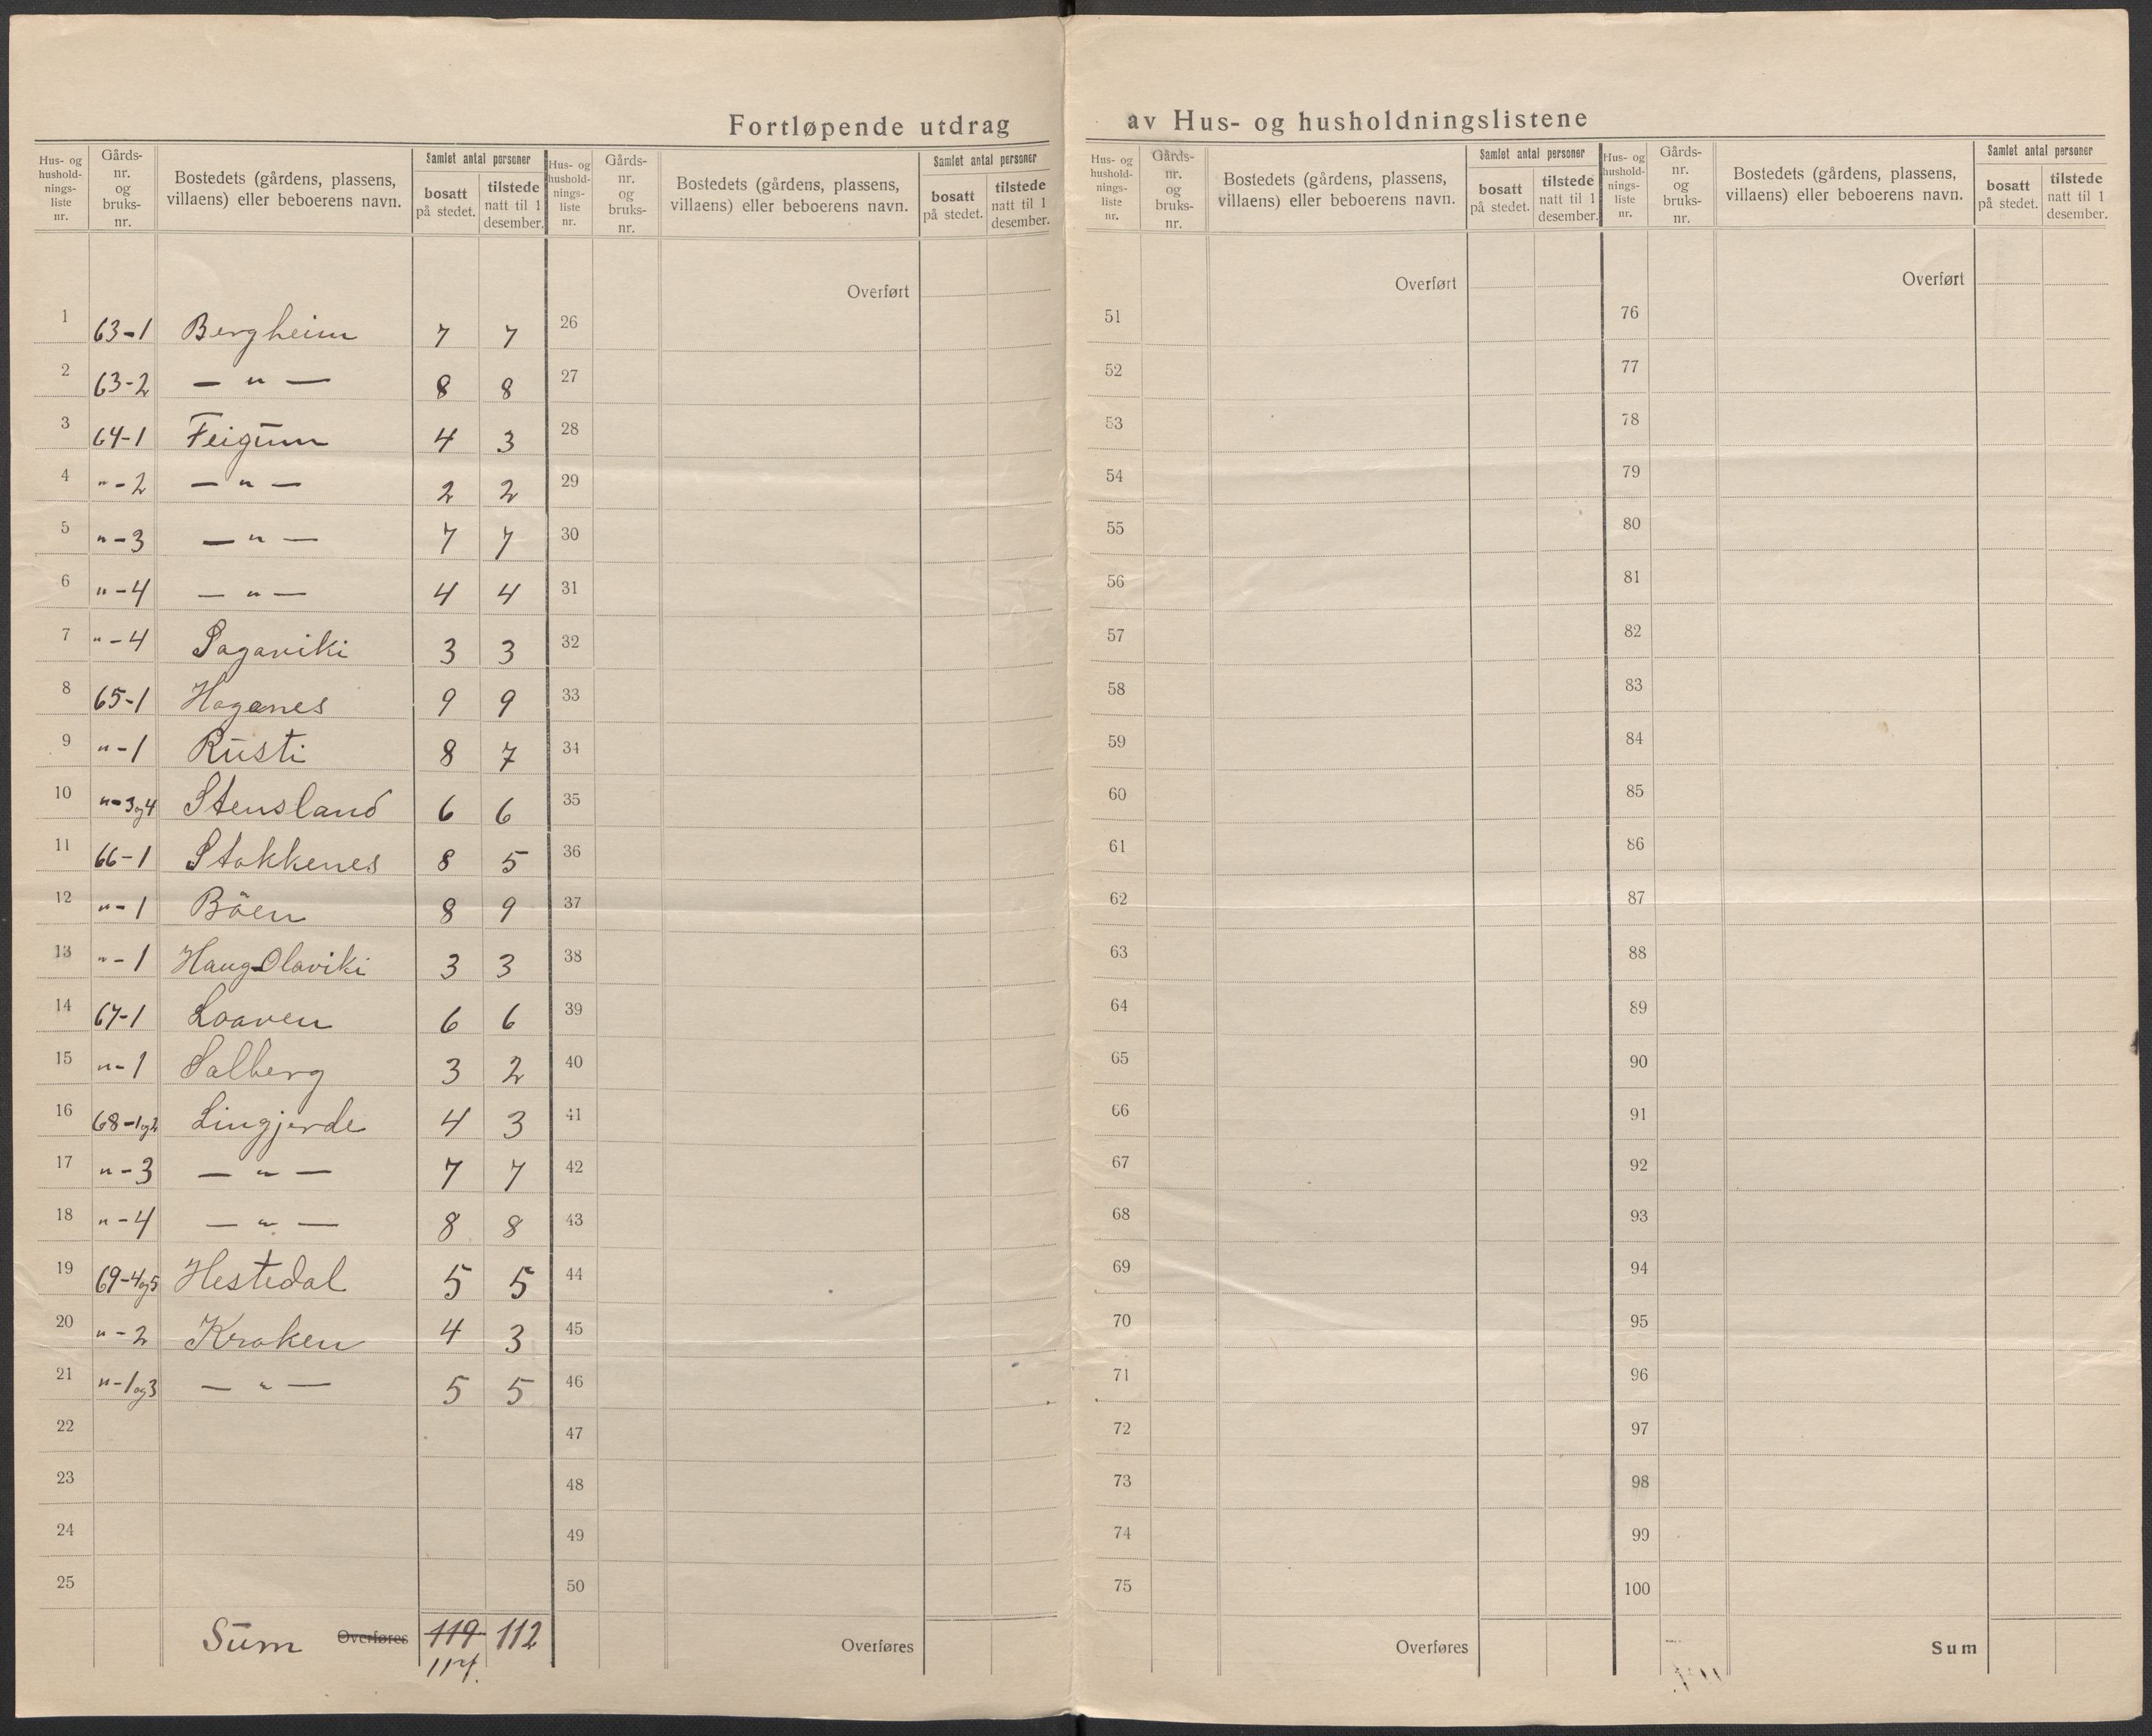 Fortløpende utdrag av Hus- og husholdningslistene
Hus- og hushold-nings-liste nr. Gårds-nr. og bruks-nr. Bostedets (gårdens, plassens, villaens) eller beboerens navn. Samlet antal personer bosatt på stedet. tilstede natt til 1 desember.
Hus- og hushold-nings-liste nr. Gårds-nr. og bruks-nr. Bostedets (gårdens, plassens, villaens) eller beboerens navn. Samlet antal personer bosatt på stedet. tilstede natt til 1 desember.
Hus- og hushold-nings-liste nr. Gårds-nr. og bruks-nr. Bostedets (gårdens, plassens, villaens) eller beboerens navn. Samlet antal personer bosatt på stedet. tilstede natt til 1 desember.
Hus- og hushold-nings-liste nr. Gårds-nr. og bruks-nr. Bostedets (gårdens, plassens, villaens) eller beboerens navn. Samlet antal personer bosatt på stedet. tilstede natt til 1 desember.
Overført Overført Overført
1 63-1 Bergheim 7 7 26 51 76
2 63-2 — " — 8 8 27 52 77
3 64-1 Feigum 4 3 28 53 78
4 "-2 — " — 2 2 29 54 79
5 "-3 — " — 7 7 30 55 80
6 "-4 — " — 4 4 31 56 81
7 "-4 Sagaviki 3 3 32 57 82
8 65-1 Haganes 9 9 33 58 83
9 "-1 Rusti 8 7 34 59 84
10 "-3og4 Stensland 6 6 35 60 85
11 66-1 Stokkenes 8 5 36 61 86
12 "-1 Böen 8 9 37 62 87
13 "-1 Haug-Olaviki 3 3 38 63 88
14 67-1 Loaven 6 6 39 64 89
15 "-1 Salberg 3 2 40 65 90
16 68-1og2 Lingjerde 4 3 41 66 91
17 "-3 — " — 7 7 42 67 92
18 "-4 — " — 8 8 43 68 93
19 69-4og5 Hestedal 5 5 44 69 94
20 "-2 Kroken 4 3 45 70 95
21 "-1og3 — " — 5 5 46 71 96
22 47 72 97
23 48 73 98
24 49 74 99
25 50 75 100
Sum Overføres 119 112 Overføres Overføres Sum